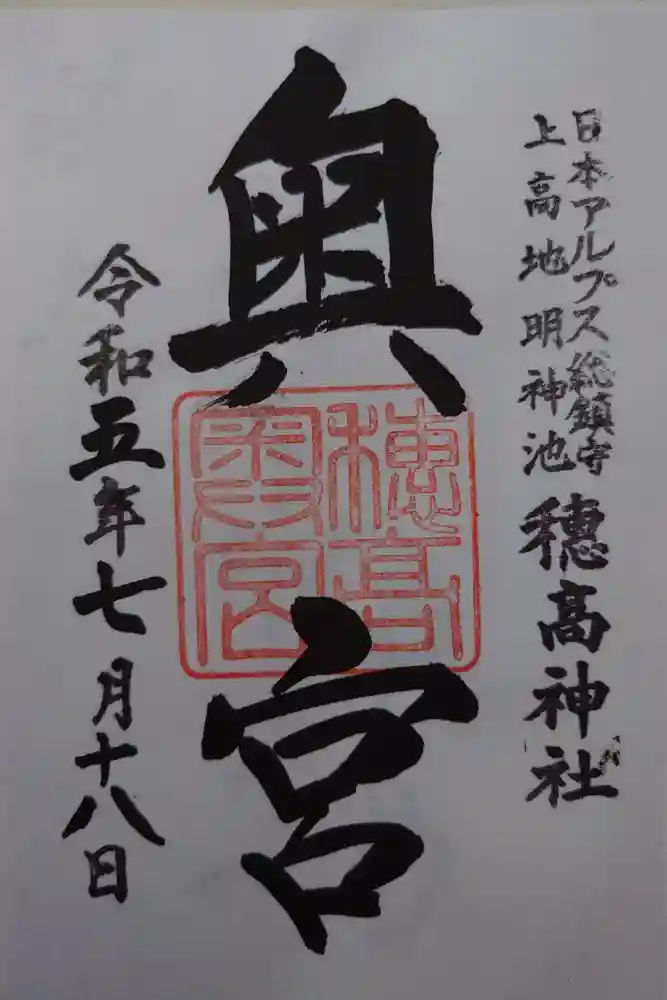 日本アルプス総鎮守
上高地明神池
穂髙神社
奥宮
穂高
奥宮
令和五年七月十八日